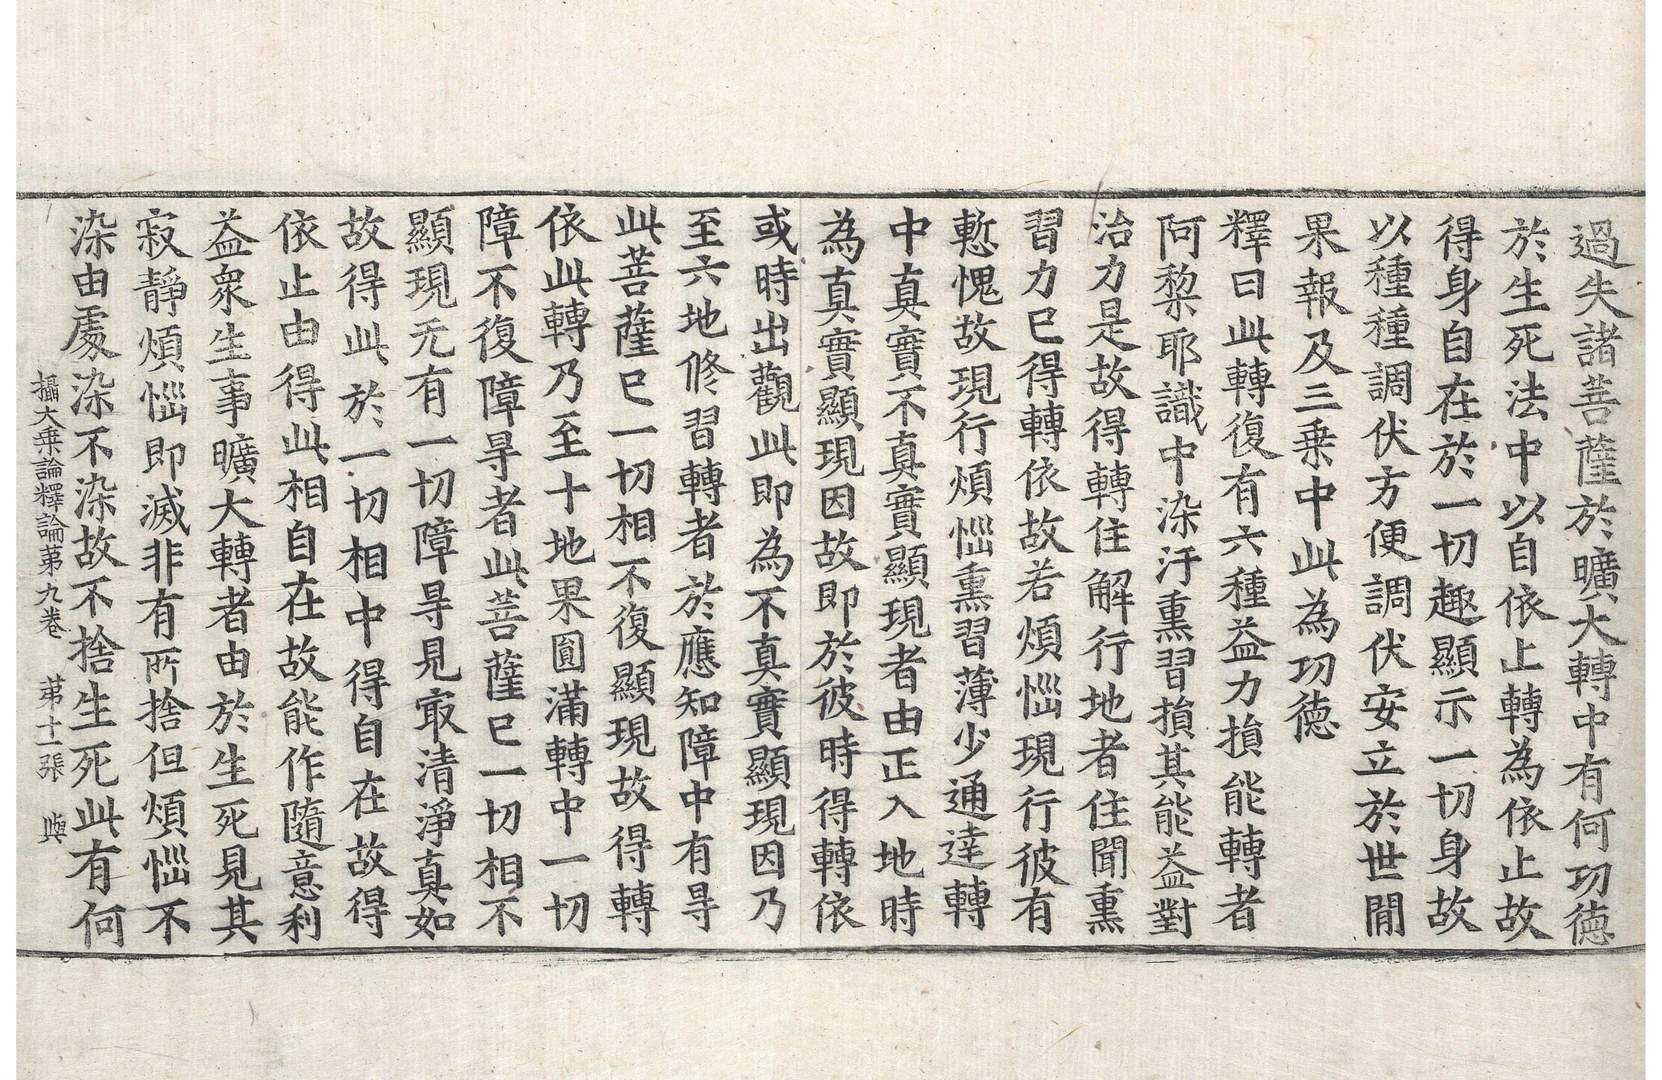 過失諸菩薩於曠大轉中有何功德
於生死法中以自依止轉為依止故
得身自在於一切趣顯示一切身故
以種種調伏方便調伏安立於世閒
果報及三乗中此為功德
釋曰此轉復有六種益力損能轉者
阿梨耶識中染汙熏習損其能益對
治力是故得轉住解行地者住聞熏
習力已得轉依故若煩惱現行彼有
慙愧故現行煩惱熏習薄少通達轉
中真實不真實顯現者由正入地時
為真實顯現因故即於彼時得轉依
或時出觀此即為不真實顯現因乃
至六地修習轉者於應知障中有㝵
此菩薩已一切相不復顯現故得轉
依此轉乃至十地果圓滿轉中一切
障不復障㝵者此菩薩已一切相不
顯現无有一切障㝵見㝡清淨真如
故得此於一切相中得自在故得
依止由得此相自在故能作隨意利
益衆生事曠大轉者由於生死見其
寂靜煩惱即滅非有所捨但煩惱不
染由處染不染故不捨生死此有何
攝大乗論釋論第九卷　第十一張　與